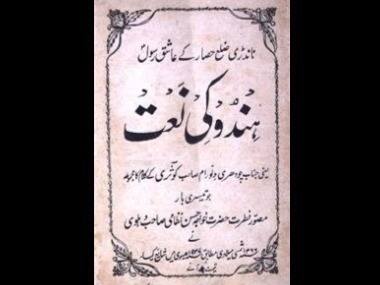 نانڈری ضلع حصار کے عاشق رسول
ہندو کی نعت
یعنی جناب چودھری دلورام صاحب کوثری کے کلام کا مجموعہ
جو تیسری بار
مصور فطرت حضرت خواجہ حسن نظامی صاحب دہلوی
نے